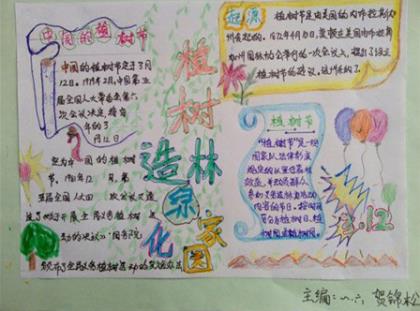 中国的植树节
中国的植树节定于3月
12日。1979年2月,中国第五
届全国人大常委会第六
次会议决定,将每
年的3
月12日
定为中国的植树
节。1981年12月,第
五届全国人大四次会议
了
动的决议》。国务院
起源
植树节是由美国的内布拉斯
州发起的。1872年4月10日,
加州园林协会举行的一次会议上,提出了设立
植树节的建议。
植树节
植树节是一些
国家以法律形式
规定的以宣传森林
效益,并动员群众
参加造林为活动
内容的节日。按时间
长短可分为植树日、植
树周或植树月。
植树
造林
绿化
家园
3.12
主编:八、六 贺锦松